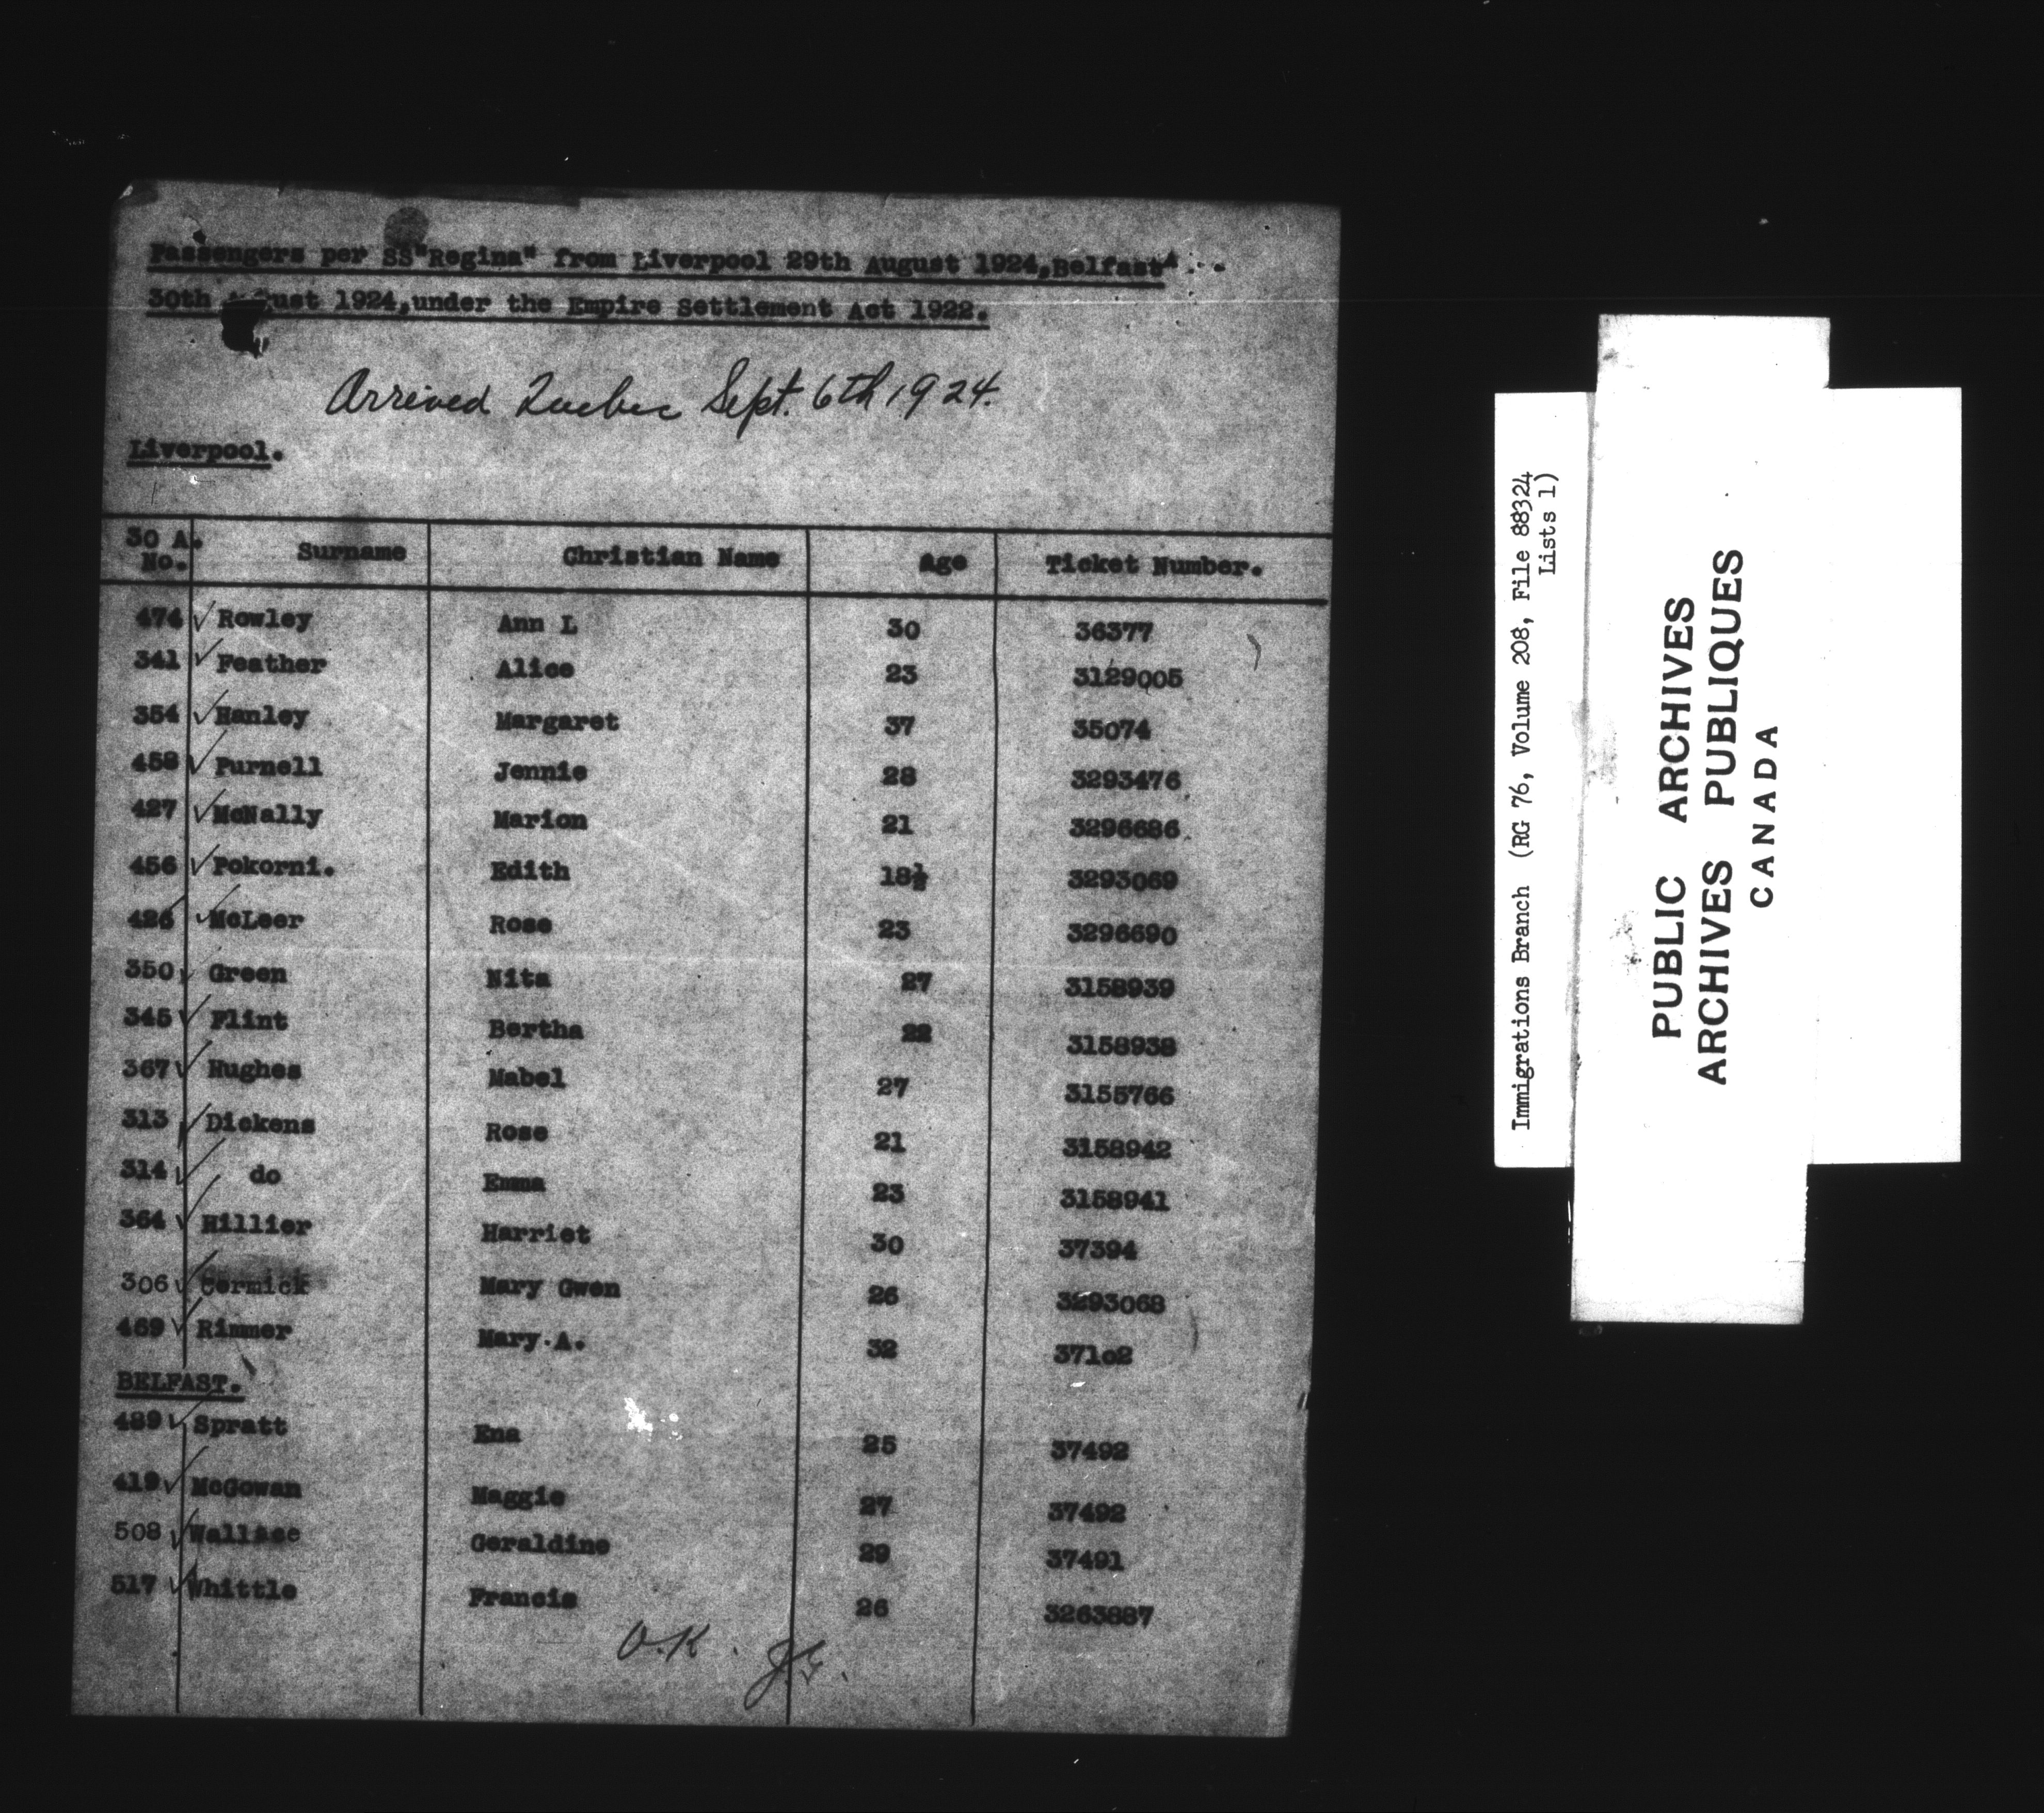 Passengers per SS"Regina" from Liverpool 29th August 1924,Belfast
30th August 1924,under the Empire Settlement Act 1922.
Arrived Quebec Sept. 6th 1924.
Liverpool.
30 A. No. Surname Christian Name Age Ticket Number.
474 Rowley Ann L 30 36377
341 Feather Alice 23 3129005
354 Hanley Margaret 37 35074
458 Purnell Jennie 28 3293476
427 McNally Marion 21 3296686
456 Pokorni. Edith 18½ 3293069
426 McLeer Rose 23 3296690
350 Green Nita 27 3158939
345 Flint Bertha 22 3158938
367 Hughes Mabel 27 3155766
313 Dickens Rose 21 3158942
314 do Emma 23 3158941
364 Hillier Harriet 30 37394
306 Cormick Mary Gwen 26 3293068
469 Rimmer Mary.A. 32 37102
BELFAST.
489 Spratt Ena 25 37492
419 McGowan Maggie 27 37492
508 Wallace Geraldine 29 37491
517 Whittle Francis 26 3263887
O.K.
Immigrations Branch (RG 76, Volume 208, File 88324
Lists 1)
PUBLIC ARCHIVES
ARCHIVES PUBLIQUES
CANADA